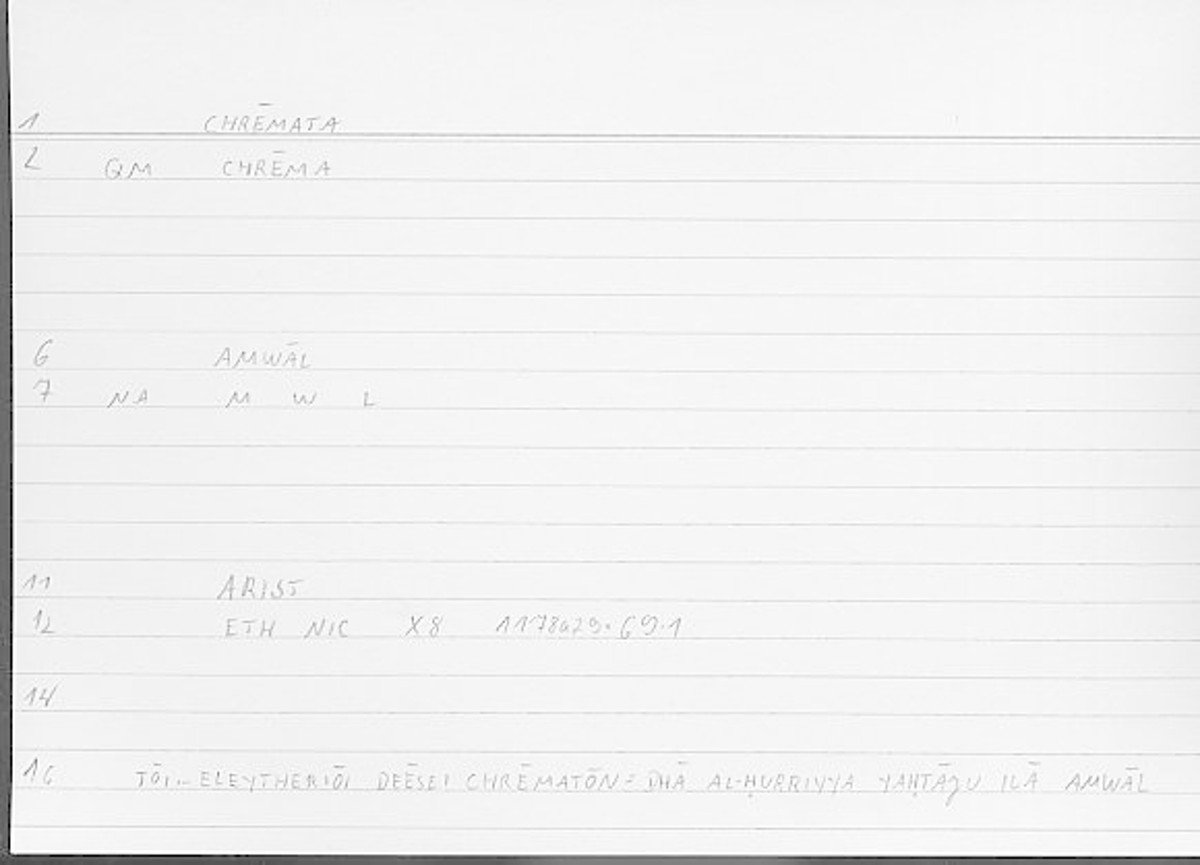 1 CHRĒMATA
2 QM CHRĒMA
6 AMWĀL
7 NA M W L
11 ARIST
12 ETH NIC X8 1178a29. 69.1
14
16 TŌI... ELEYTHERIŌI DEĒSEI CHRĒMATŌN = DHĀ AL-ḤURRIYYA YAḤTĀJU ILĀ AMWĀL